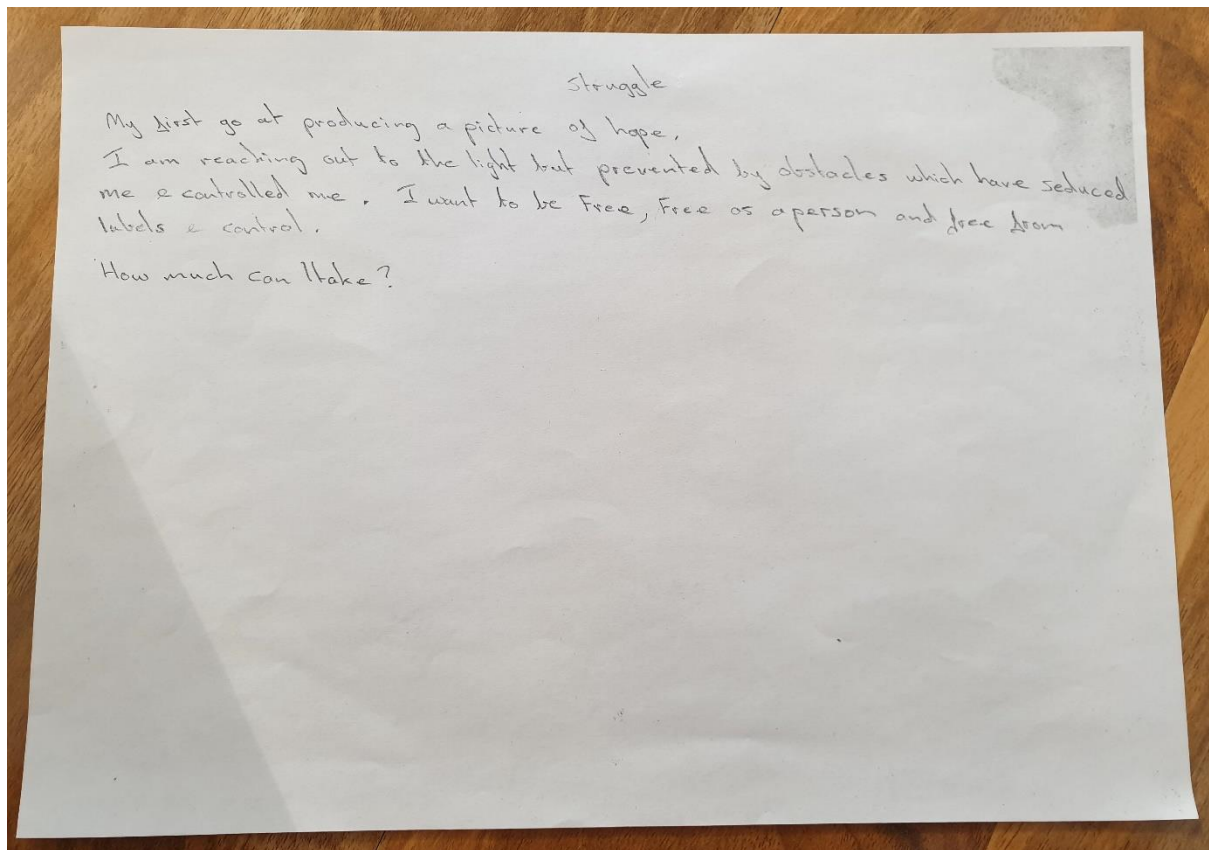 Struggle
My first go at producing a picture of hope.
I am reaching out to the light but prevented by obstacles which have seduced
me & controlled me. I want to be Free, Free as a person and free from
labels & control.
How much can I take?